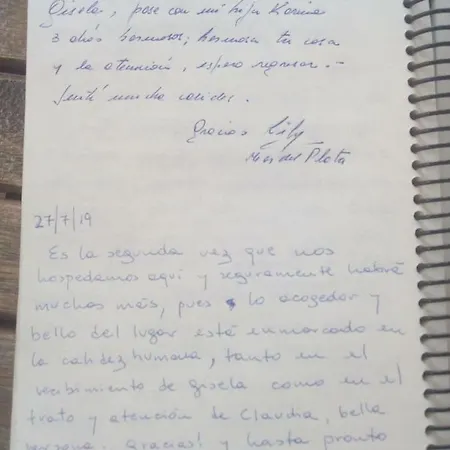 Gisela, pase con mi hija Karina
3 días hermosos; hermosa tu casa
y la atención, espero regresar.-
Sentí mucha calidez.
Gracias Lily
Mar del Plata
27/7/19
Es la segunda vez que nos
hospedamos aquí y seguramente habrá
muchas más, pues lo acogedor y
bello del lugar está enmarcado en
la calidez humana, tanto en el
recibimiento de Gisela como en el
trato y atención de Claudia, bella
persona. Gracias! y hasta pronto